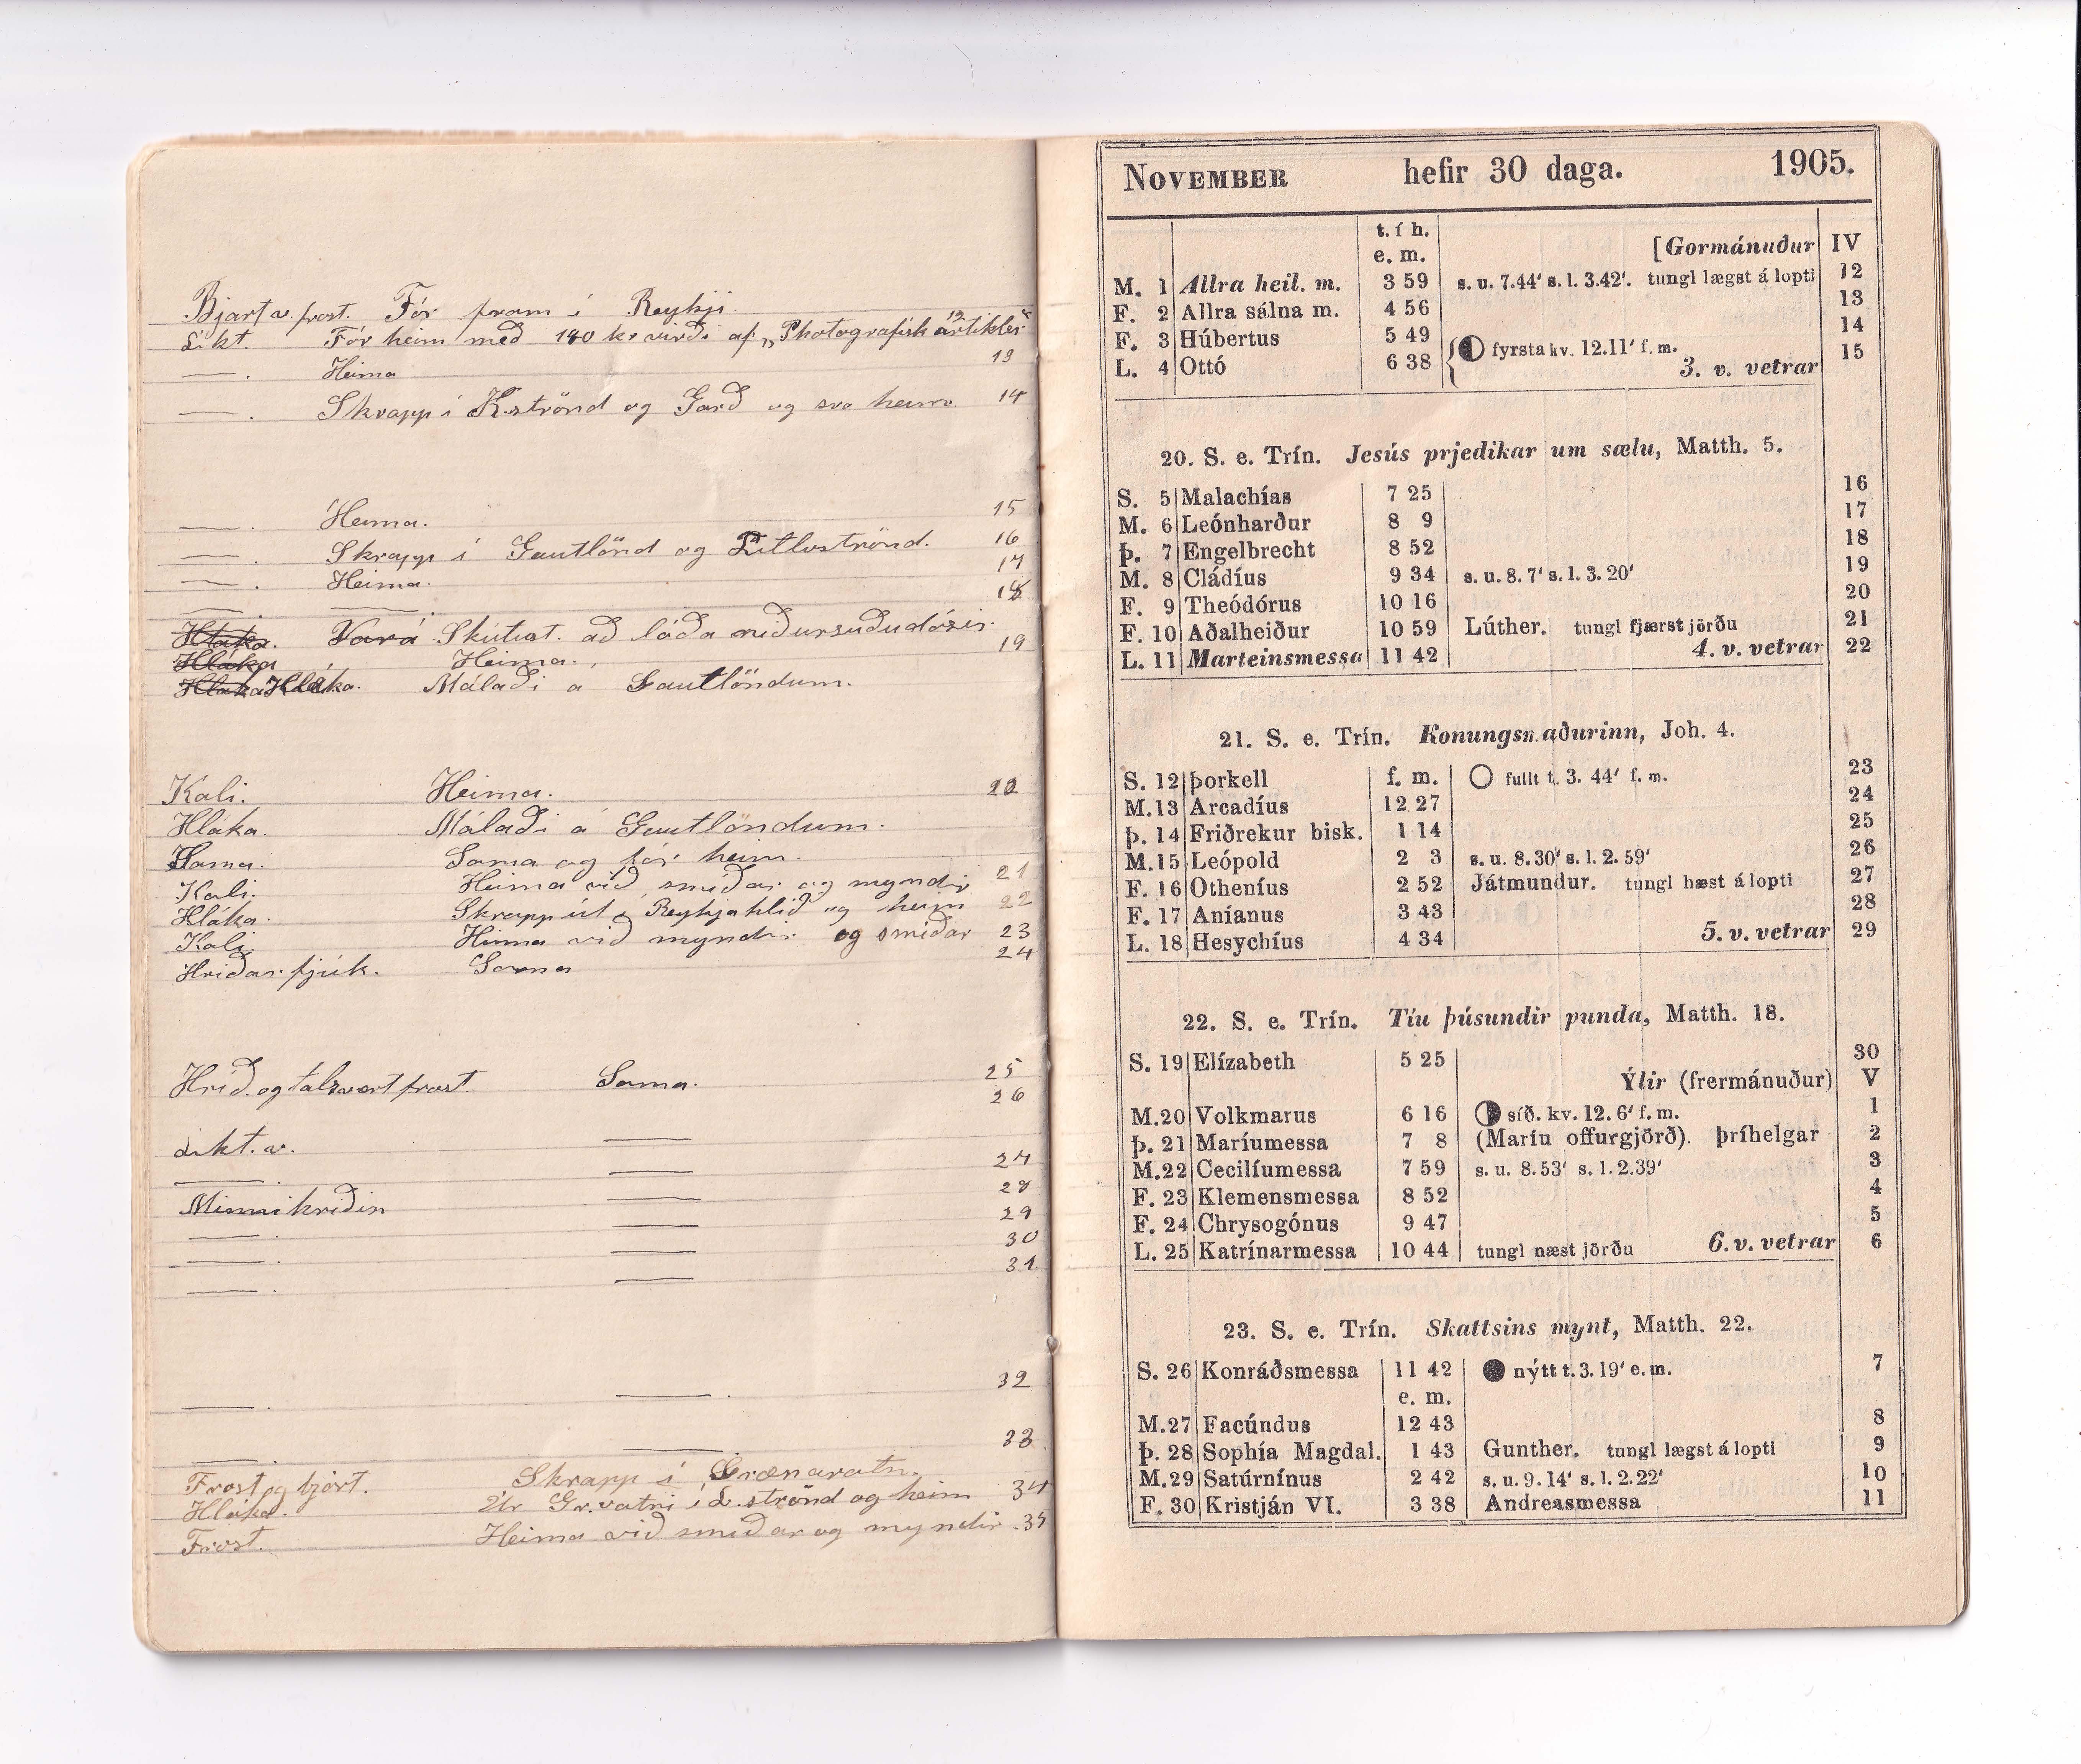 Bjart v. frost. Fór fram í Reykji.
Líkt. Fór heim með 140 kr virði af „Photografisk artikler“ 12
—. Heima 13
—. Skrapp í K.strönd og Garð og svo heim 14
—. Heima. 15
—. Skrapp í Gautlönd og Litluströnd. 16
—. Heima. 17
— — 18
Hláka. Var á Skútust. að lóða niðursuðudósir.
Hláka Heima. 19
Hláka Hláka. Málaði á Gautlöndum.
Kali. Heima. 20
Hláka. Málaði á Gautlöndum.
Sama. Sama og fór heim.
Kali. Heima við smíðar og myndir 21
Hláka. Skrapp út í Reykjahlíð og heim 22
Kali. Heima við myndir og smíðar 23
Hríðar fjúk. Sama 24
Hríð og talsvert frost. Sama. 25
26
Líkt. v. —
27
—. —
28
Minni hríðin —
29
—. —
30
—. —
31
—. —
32
—. —.
33
—. —
Frost og bjart. Skrapp í Grænavatn.
Hláka. Úr Gr.vatni í L.strönd og heim 34
Frost. Heima við smíðar og myndir. 35
NOVEMBER hefir 30 daga. 1905.
t. í h.
e. m. [Gormánuður IV
M. 1 Allra heil. m. 3 59 s. u. 7.44' s. l. 3.42'. tungl lægst á lopti 12
F. 2 Allra sálna m. 4 56 13
F. 3 Húbertus 5 49 14
L. 4 Ottó 6 38 { fyrsta kv. 12.11' f. m. 3. v. vetrar 15
20. S. e. Trín. Jesús prjedikar um sælu, Matth. 5.
S. 5 Malachías 7 25 16
M. 6 Leónharður 8 9 17
Þ. 7 Engelbrecht 8 52 18
M. 8 Cládíus 9 34 s. u. 8. 7' s. l. 3. 20' 19
F. 9 Theódórus 10 16 20
F. 10 Aðalheiður 10 59 Lúther. tungl fjærst jörðu 21
L. 11 Marteinsmessa 11 42 4. v. vetrar 22
21. S. e. Trín. Konungsmaðurinn, Joh. 4.
S. 12 Þorkell f. m. fullt t. 3. 44' f. m. 23
M. 13 Arcadíus 12 27 24
Þ. 14 Friðrekur bisk. 1 14 25
M. 15 Leópold 2 3 s. u. 8.30' s. l. 2. 59' 26
F. 16 Otheníus 2 52 Játmundur. tungl hæst á lopti 27
F. 17 Aníanus 3 43 28
L. 18 Hesychíus 4 34 5. v. vetrar 29
22. S. e. Trín. Tíu þúsundir punda, Matth. 18.
S. 19 Elízabeth 5 25 30
Ýlir (frermánuður) V
M. 20 Volkmarus 6 16 síð. kv. 12. 6' f. m. 1
Þ. 21 Maríumessa 7 8 (Maríu offurgjörð). Þríhelgar 2
M. 22 Cecilíumessa 7 59 s. u. 8.53' s. l. 2.39' 3
F. 23 Klemensmessa 8 52 4
F. 24 Chrysogónus 9 47 5
L. 25 Katrínarmessa 10 44 tungl næst jörðu 6. v. vetrar 6
23. S. e. Trín. Skattsins mynt, Matth. 22.
S. 26 Konráðsmessa 11 42 nýtt t. 3. 19' e. m. 7
e. m.
M. 27 Facúndus 12 43 8
Þ. 28 Sophía Magdal. 1 43 Gunther. tungl lægst á lopti 9
M. 29 Satúrnínus 2 42 s. u. 9. 14' s. l. 2. 22' 10
F. 30 Kristján VI. 3 38 Andreasmessa 11